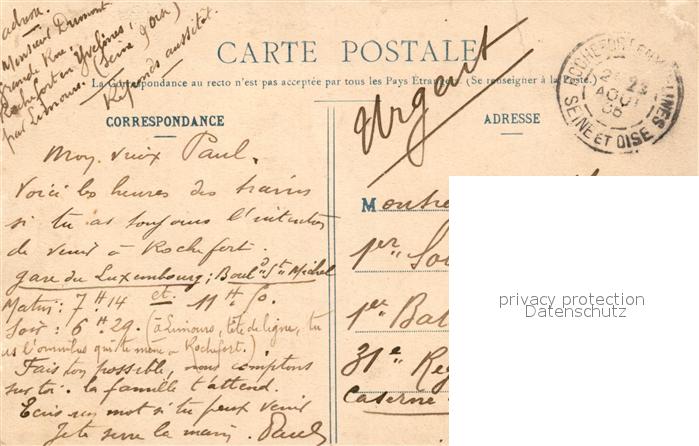 adresse.
Monsieur Dumont
Grande Rue,
Rochefort en Yvelines,
par Limours. (Seine & Oise)
Réponds aussitôt.
CARTE POSTALE
La Correspondance au recto n'est pas acceptée par tous les Pays Étrangers (Se renseigner à la Poste.)
Urgent
ROCHEFORT EN YVELINES
23
AOUT
06
SEINE ET OISE
CORRESPONDANCE
ADRESSE
Mon vieux Paul,
Voici les heures des trains
si tu as toujours l'intention
de venir à Rochefort.
gare du Luxembourg; Boul.d St Michel
Matin: 7H.14 et 11H.50.
Soir: 6H29. (à Limours, tête de ligne, tu
as l'omnibus qui te mène à Rochefort.)
Fais ton possible, nous comptons
sur toi. la famille t'attend.
Ecris un mot si tu peux venir
Je te serre la main. Paul
Monsie
1er So
1er Bat
31e Reg
Caserne
privacy protection
Datenschutz